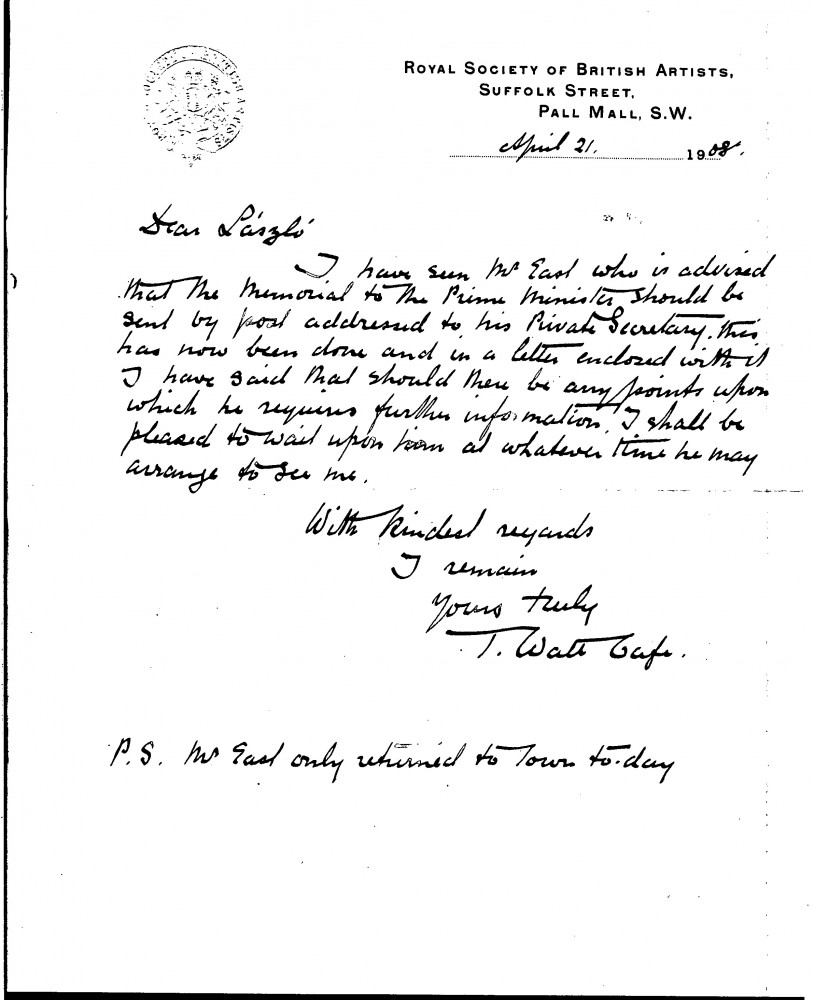 ROYAL SOCIETY OF BRITISH ARTISTS,
SUFFOLK STREET,
PALL MALL, S.W.
April 21. 1908.
Dear László
I have seen Mr East who is advised
that the Memorial to the Prime Minister should be
sent by post addressed to his Private Secretary. this
has now been done and in a letter enclosed with it
I have said that should there be any points upon
which he requires further information, I shall be
pleased to wait upon him at whatever time he may
arrange to see me.
With kindest regards
I remain
Yours truly
T. Watt Cafe.
P.S. Mr East only returned to Town to-day